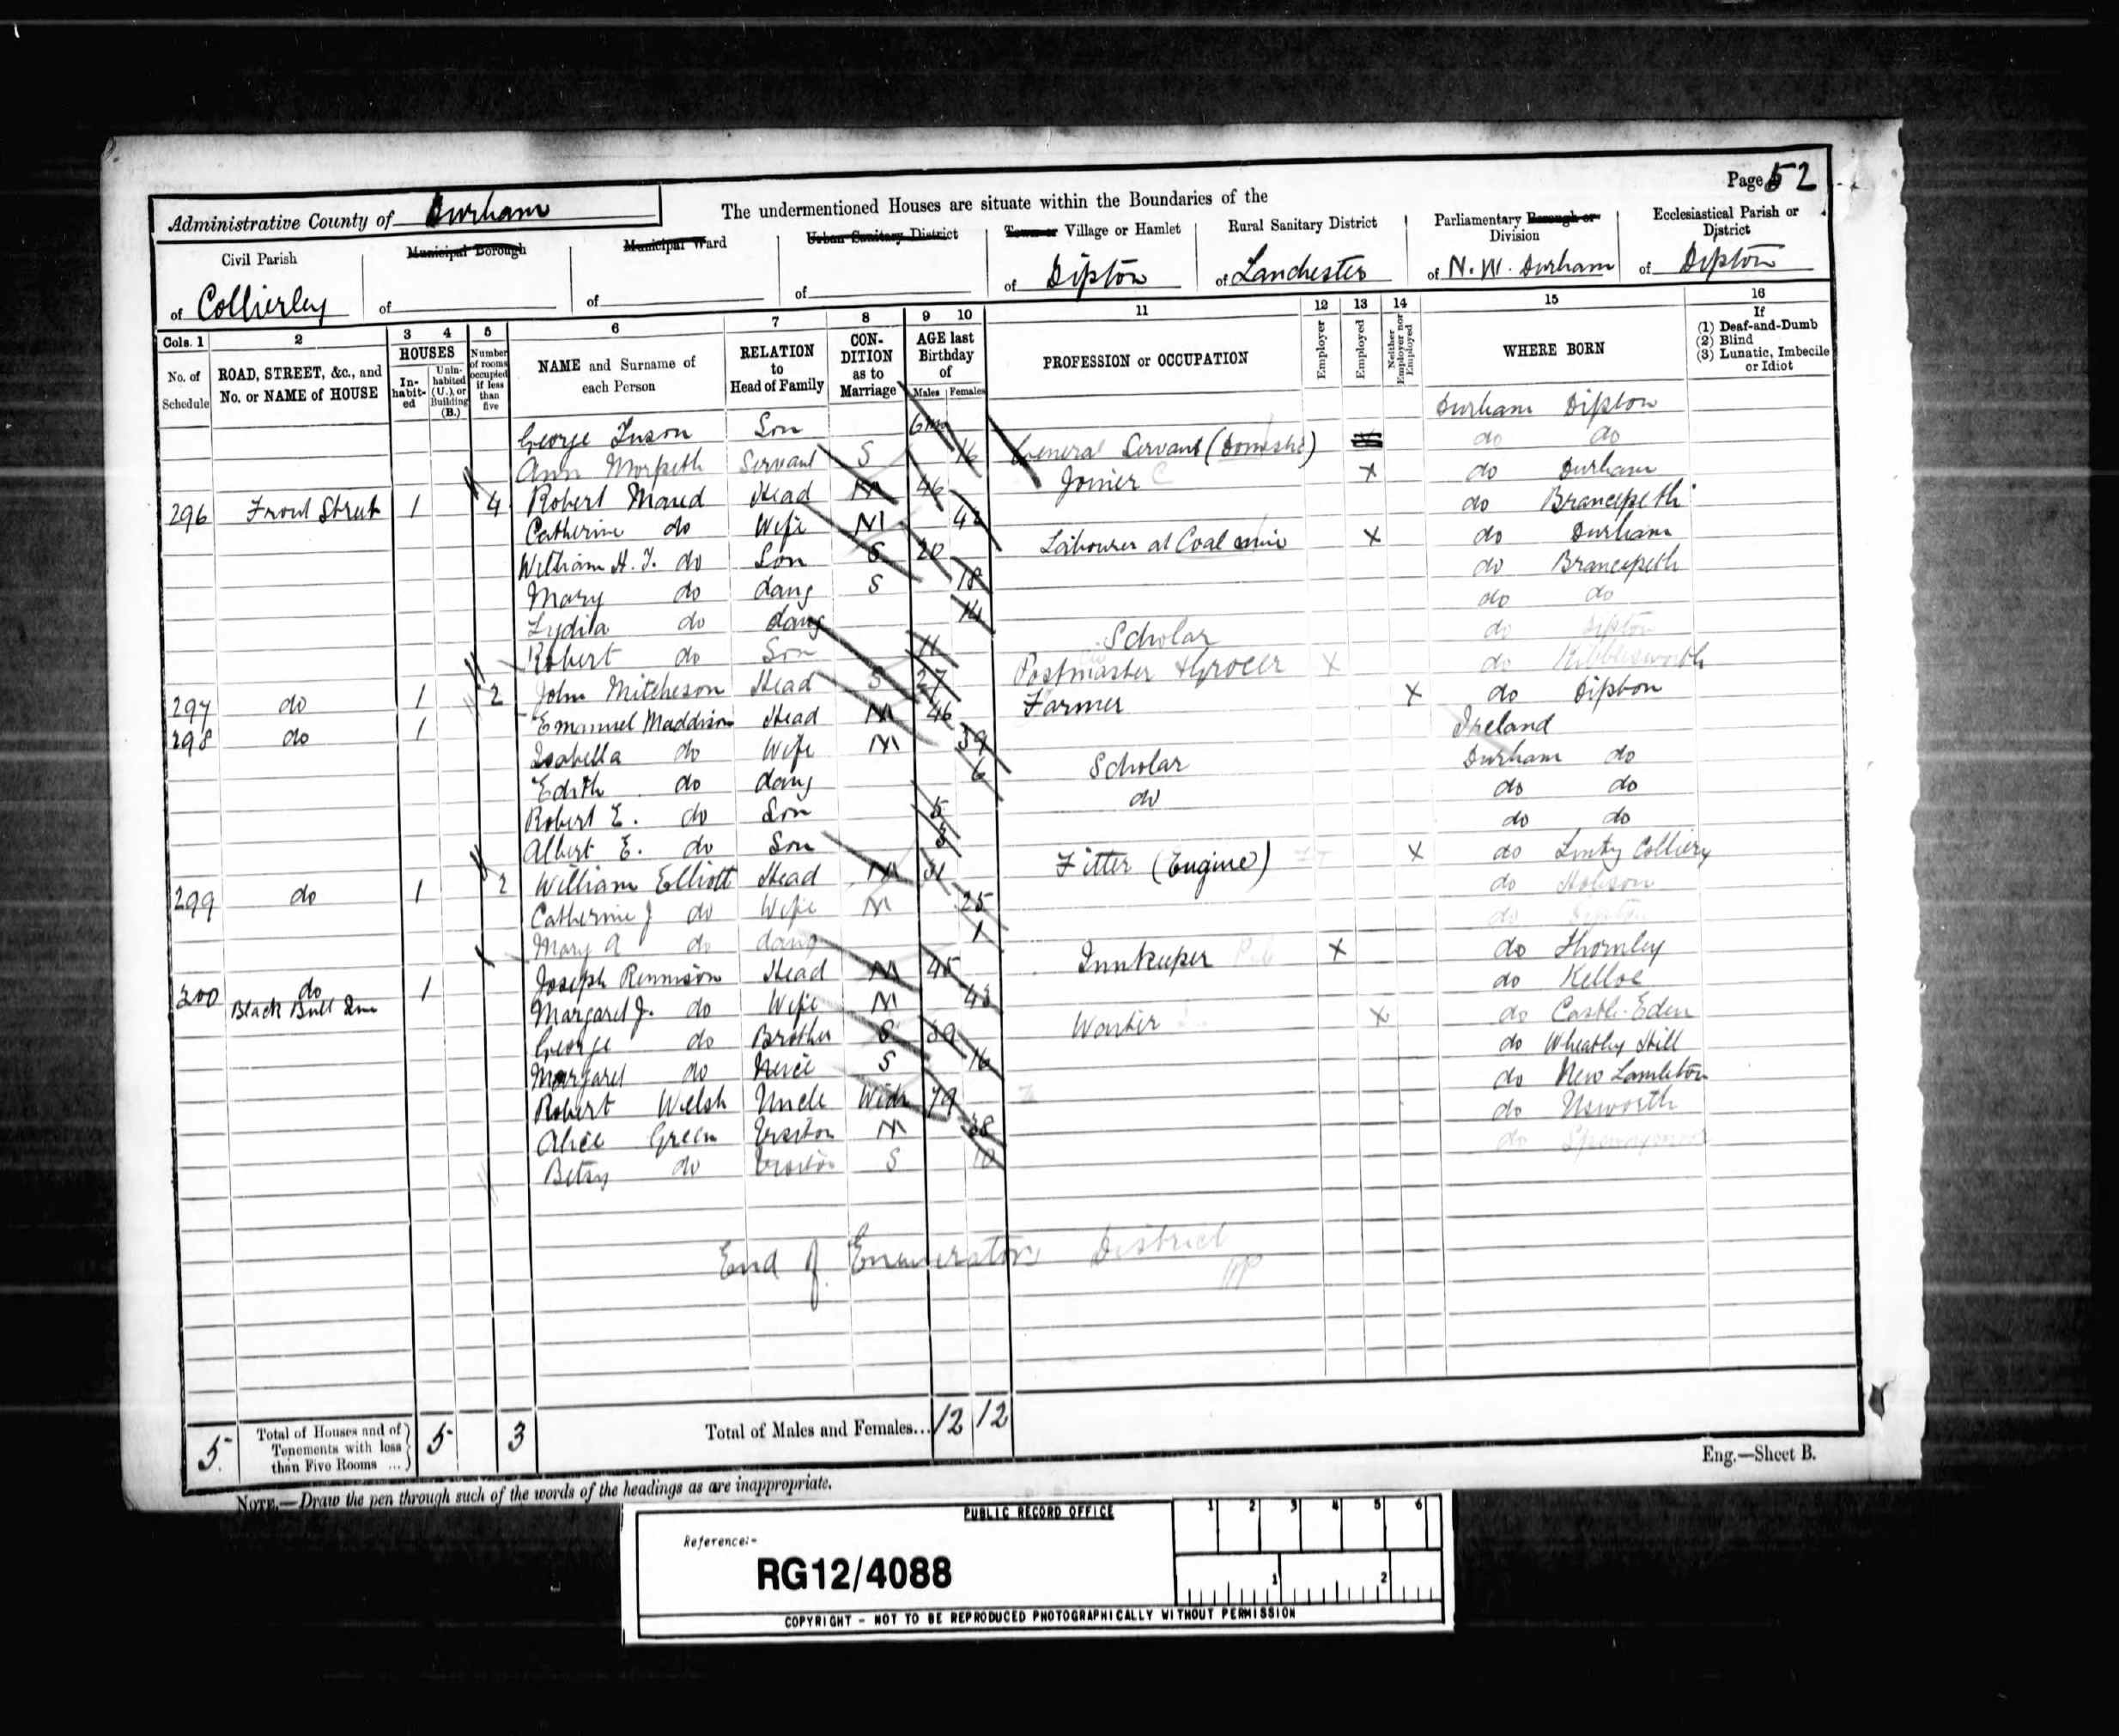 Page 52
Administrative County of Durham
The undermentioned Houses are situate within the Boundaries of the
Civil Parish of Collierley
Municipal Borough of
Municipal Ward of
Urban Sanitary District of
Town or Village or Hamlet of Dipton
Rural Sanitary District of Lanchester
Parliamentary Borough or Division of N. W. Durham
Ecclesiastical Parish or District of Dipton
Cols. 1 2 3 4 5 6 7 8 9 10 11 12 13 14 15 16
No. of Schedule
ROAD, STREET, &c., and No. or NAME of HOUSE
HOUSES
In-habit-ed
Unin-habited (U.), or Building (B.)
Number of rooms occupied if less than five
NAME and Surname of each Person
RELATION to Head of Family
CON-DITION as to Marriage
AGE last Birthday of
Males Females
PROFESSION or OCCUPATION
Employer
Employed
Neither Employer nor Employed
WHERE BORN
If
(1) Deaf-and-Dumb
(2) Blind
(3) Lunatic, Imbecile or Idiot
George Son 6m Durham Dipton
Ann Morpeth Servant S 16 General Servant (Domestic) do do
296 Front Street 1 4 Robert Maud Head M 46 Joiner x do Durham
Catherine do Wife M do Brancepeth
William H. T. do Son S 20 Labourer at Coal mine x do Durham
Mary do daug S 18 do Brancepeth
Lydia do daug 14 do do
Robert do Son 11 Scholar do Dipton
297 do 1 2 John Mitcheson Head S 27 Postmaster & Grocer x do Kibblesworth
298 do 1 Emanuel Maddison Head M 46 Farmer x do Dipton
Isabella do Wife M 39 Ireland
Edith do daug 6 Scholar Durham do
Robert E. do Son 5 do do do
Albert E. do Son 3 do do
299 do 1 2 William Elliott Head M 31 Fitter (Engine) x do Lintz Colliery
Catherine J do Wife M 25 do Hobson
Mary A do daug 1 do Dipton
300 do Black Bull Inn 1 Joseph Rennison Head M 45 Innkeeper x do Thornley
Margaret J. do Wife M 43 do Kelloe
George do Brother S 39 Waiter x do Castle Eden
Margaret do Neice S 16 do Wheatley Hill
Robert Welsh Uncle Widr 79 do New Lambton
Alice Green Visitor M 38 do Usworth
Betsy do Visitor S 10 do Spennymoor
End of Enumerators District
5 Total of Houses and of Tenements with less than Five Rooms ... 5 3 Total of Males and Females... 12 12
Eng.—Sheet B.
NOTE.—Draw the pen through such of the words of the headings as are inappropriate.
PUBLIC RECORD OFFICE
1 2 3 4 5 6
Reference:-
RG12/4088
1 2
COPYRIGHT - NOT TO BE REPRODUCED PHOTOGRAPHICALLY WITHOUT PERMISSION